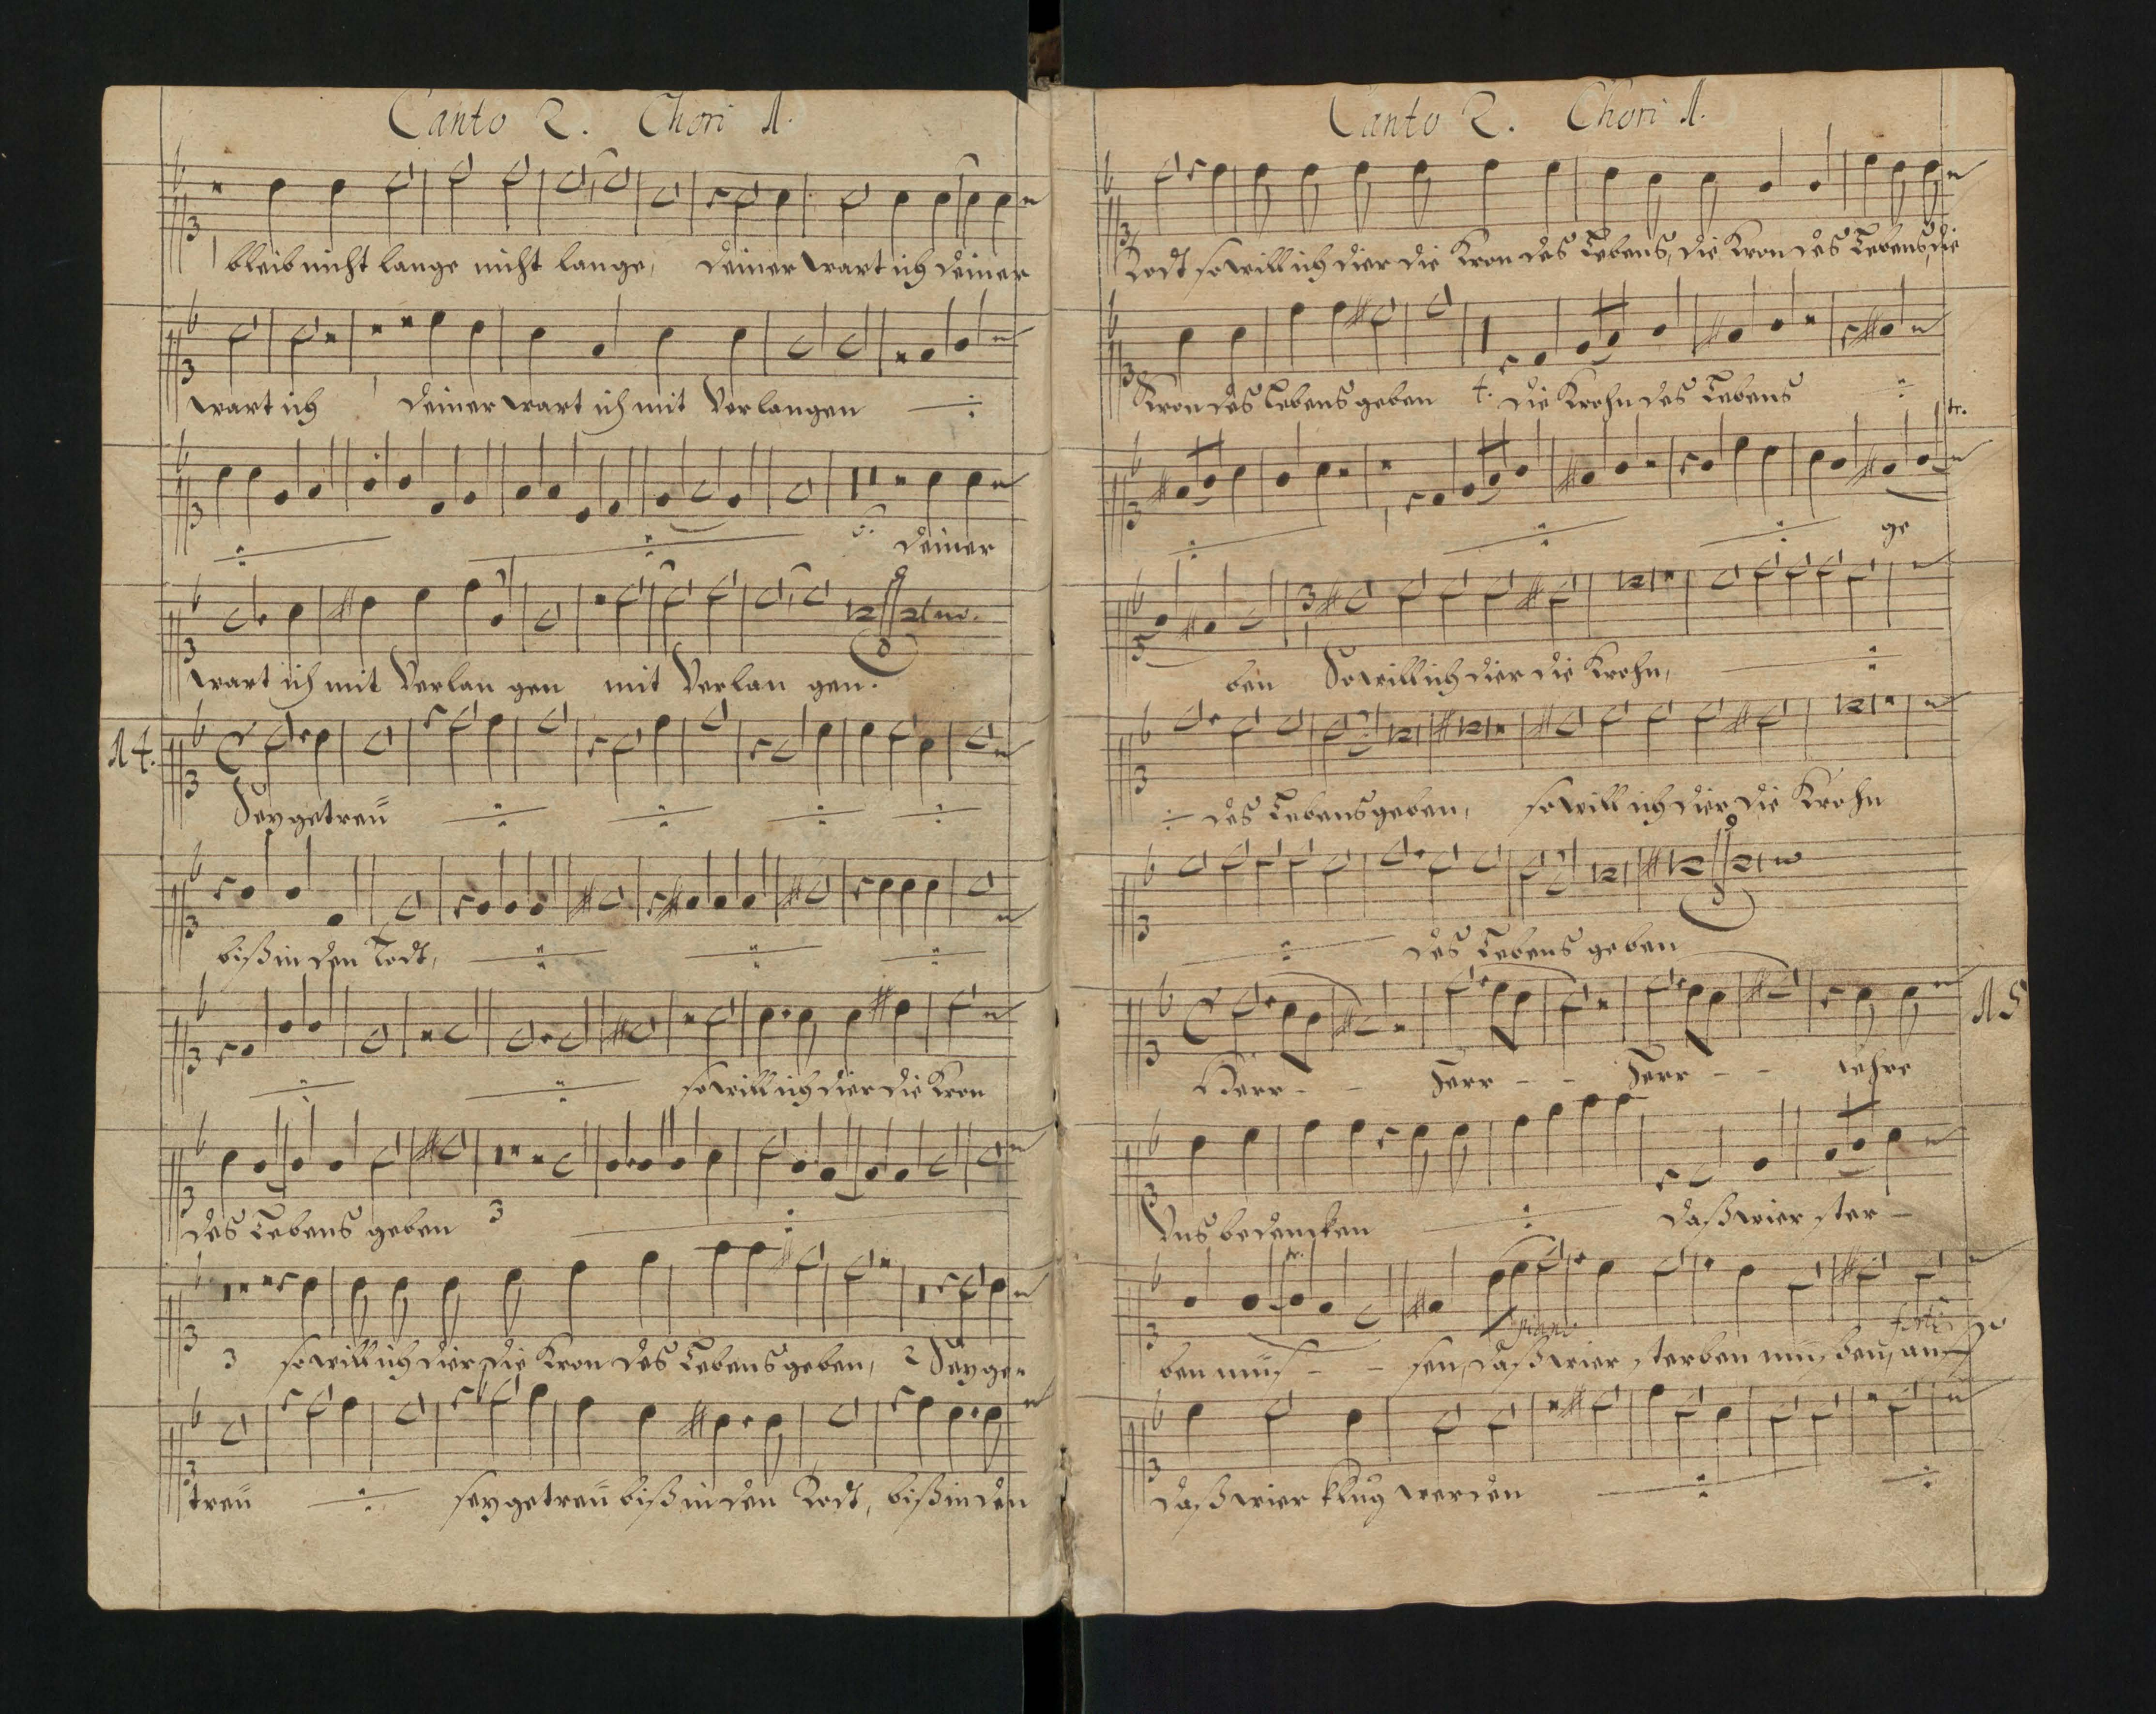 Canto 2. Chori 1.
bleib nicht lange nicht lange, deiner wart ich deiner
wart ich deiner wart ich mit Verlangen
deiner
wart ich mit Verlan gen mit Verlan gen.
14.
Sey getreü
biß in den Todt,
so will ich dier die Kron
des Lebens geben 3
3 so will ich dier die Kron des Lebens geben, 2 Sey ge-
treü sey getreü biß in den Todt, biß in den
Canto 2. Chori 1.
Todt so will ich dier die Kron des Lebens, die Kron des Lebens, die
Kron des Lebens geben 4. die Krohn des Lebens
tr.
ge
ben So will ich dier die Krohn,
des Lebens geben, so will ich dier die Krohn
des Lebens geben
15
Herr - - Herr - - Herr - - lehre
Uns bedencken daß wier ster-
tr.
piano forte
ben müs - - sen, daß wier sterben müssen, auf
daß wier klug werden